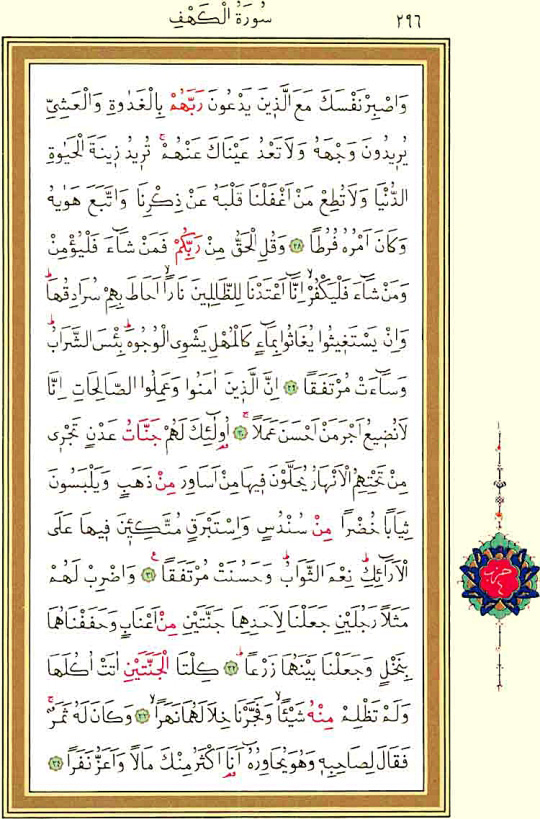 سُورَةُ الْكَهْفِ
٢٩٦
وَاصْبِرْ نَفْسَكَ مَعَ الَّذ۪ينَ يَدْعُونَ رَبَّهُمْ بِالْغَدٰوةِ وَالْعَشِيِّ
يُر۪يدُونَ وَجْهَهُ وَلَا تَعْدُ عَيْنَاكَ عَنْهُمْۚ تُر۪يدُ ز۪ينَةَ الْحَيٰوةِ
الدُّنْيَا وَلَا تُطِعْ مَنْ اَغْفَلْنَا قَلْبَهُ عَنْ ذِكْرِنَا وَاتَّبَعَ هَوٰيهُ
وَكَانَ اَمْرُهُ فُرُطًا ﴿٢٨﴾ وَقُلِ الْحَقُّ مِنْ رَبِّكُمْ فَمَنْ شَٓاءَ فَلْيُؤْمِنْ
وَمَنْ شَٓاءَ فَلْيَكْفُرْۙ اِنَّٓا اَعْتَدْنَا لِلظَّالِم۪ينَ نَارًاۙ اَحَاطَ بِهِمْ سُرَادِقُهَاۜ
وَاِنْ يَسْتَغ۪يثُوا يُغَاثُوا بِمَٓاءٍ كَالْمُهْلِ يَشْوِي الْوُجُوهَۜ بِئْسَ الشَّرَابُۜ
وَسَٓاءَتْ مُرْتَفَقًا ﴿٢٩﴾ اِنَّ الَّذ۪ينَ اٰمَنُوا وَعَمِلُوا الصَّالِحَاتِ اِنَّا
لَا نُض۪يعُ اَجْرَ مَنْ اَحْسَنَ عَمَلًاۚ ﴿٣٠﴾ اُو۬لٰٓئِكَ لَهُمْ جَنَّاتُ عَدْنٍ تَجْر۪ي
مِنْ تَحْتِهِمُ الْاَنْهَارُ يُحَلَّوْنَ ف۪يهَا مِنْ اَسَاوِرَ مِنْ ذَهَبٍ وَيَلْبَسُونَ
ثِيَابًا خُضْرًا مِنْ سُنْدُسٍ وَاِسْتَبْرَقٍ مُتَّكِـ۪ٔينَ ف۪يهَا عَلَى
الْاَرَٓائِكِۜ نِعْمَ الثَّوَابُۜ وَحَسُنَتْ مُرْتَفَقًا۟ ﴿٣١﴾ وَاضْرِبْ لَهُمْ
مَثَلًا رَجُلَيْنِ جَعَلْنَا لِاَحَدِهِمَا جَنَّتَيْنِ مِنْ اَعْنَابٍ وَحَفَفْنَاهُمَا
بِنَخْلٍ وَجَعَلْنَا بَيْنَهُمَا زَرْعًاۜ ﴿٣٢﴾ كِلْتَا الْجَنَّتَيْنِ اٰتَتْ اُكُلَهَا
وَلَمْ تَظْلِمْ مِنْهُ شَيْـًٔاۙ وَفَجَّرْنَا خِلَالَهُمَا نَهَرًاۙ ﴿٣٣﴾ وَكَانَ لَهُ ثَمَرٌۚ
فَقَالَ لِصَاحِبِه۪ وَهُوَ يُحَاوِرُهُٓ اَنَا۬ اَكْثَرُ مِنْكَ مَالًا وَاَعَزُّ نَفَرًا ﴿٣٤﴾
حزب
٤